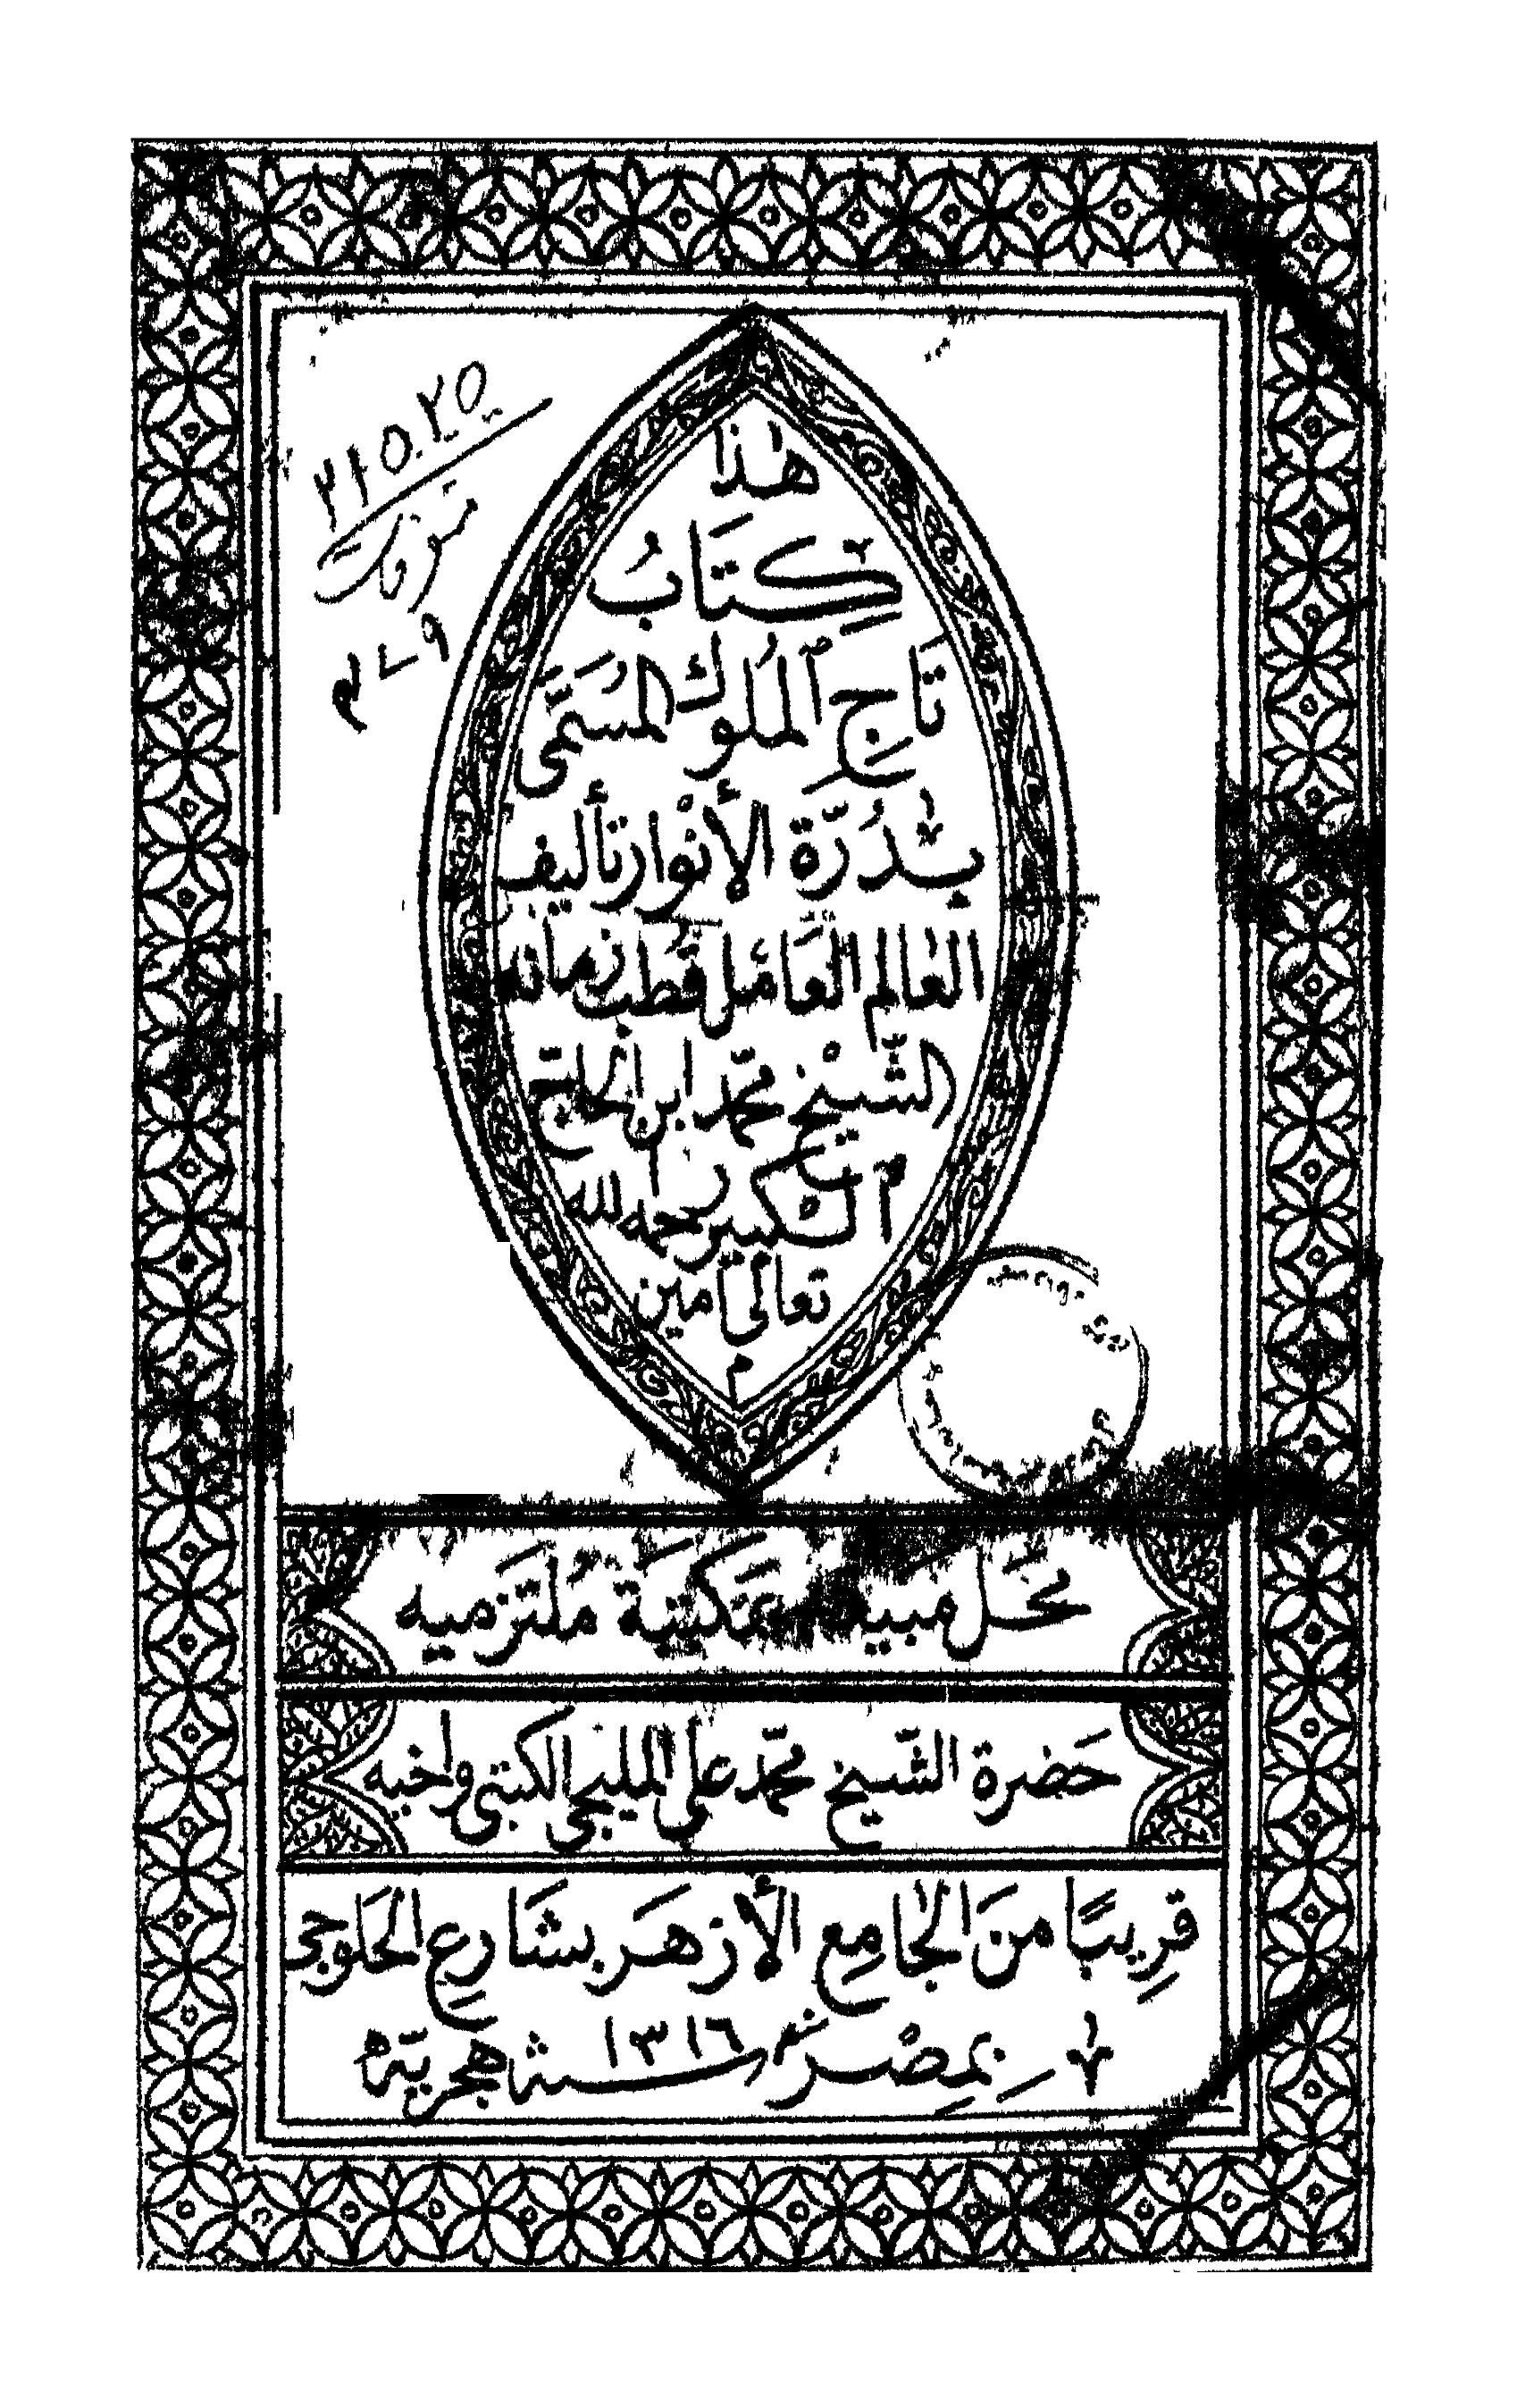 هٰذا
كِتَابُ
تَاجِ الْمُلُوكِ الْمُسَمَّى
بِدُرَّةِ الْأَنْوَار تأليف
العٰالم العَامل قُطب زمانه
الشّيخ محمّد ابن الحاجّ
الكبير رحمه الله
تعالى امين
م
محَل مبيعه بمَكتبَة مُلتَزميه
حَضرة الشّيخ محمّد على المليجى الكتبى واخيه
قرِيبًا منَ الجٰامِع الأزهَر بشَارِع الحَلوجى
بمِصْر سنة ١٣١٦ هجريّة
٢١٥٠٢٥